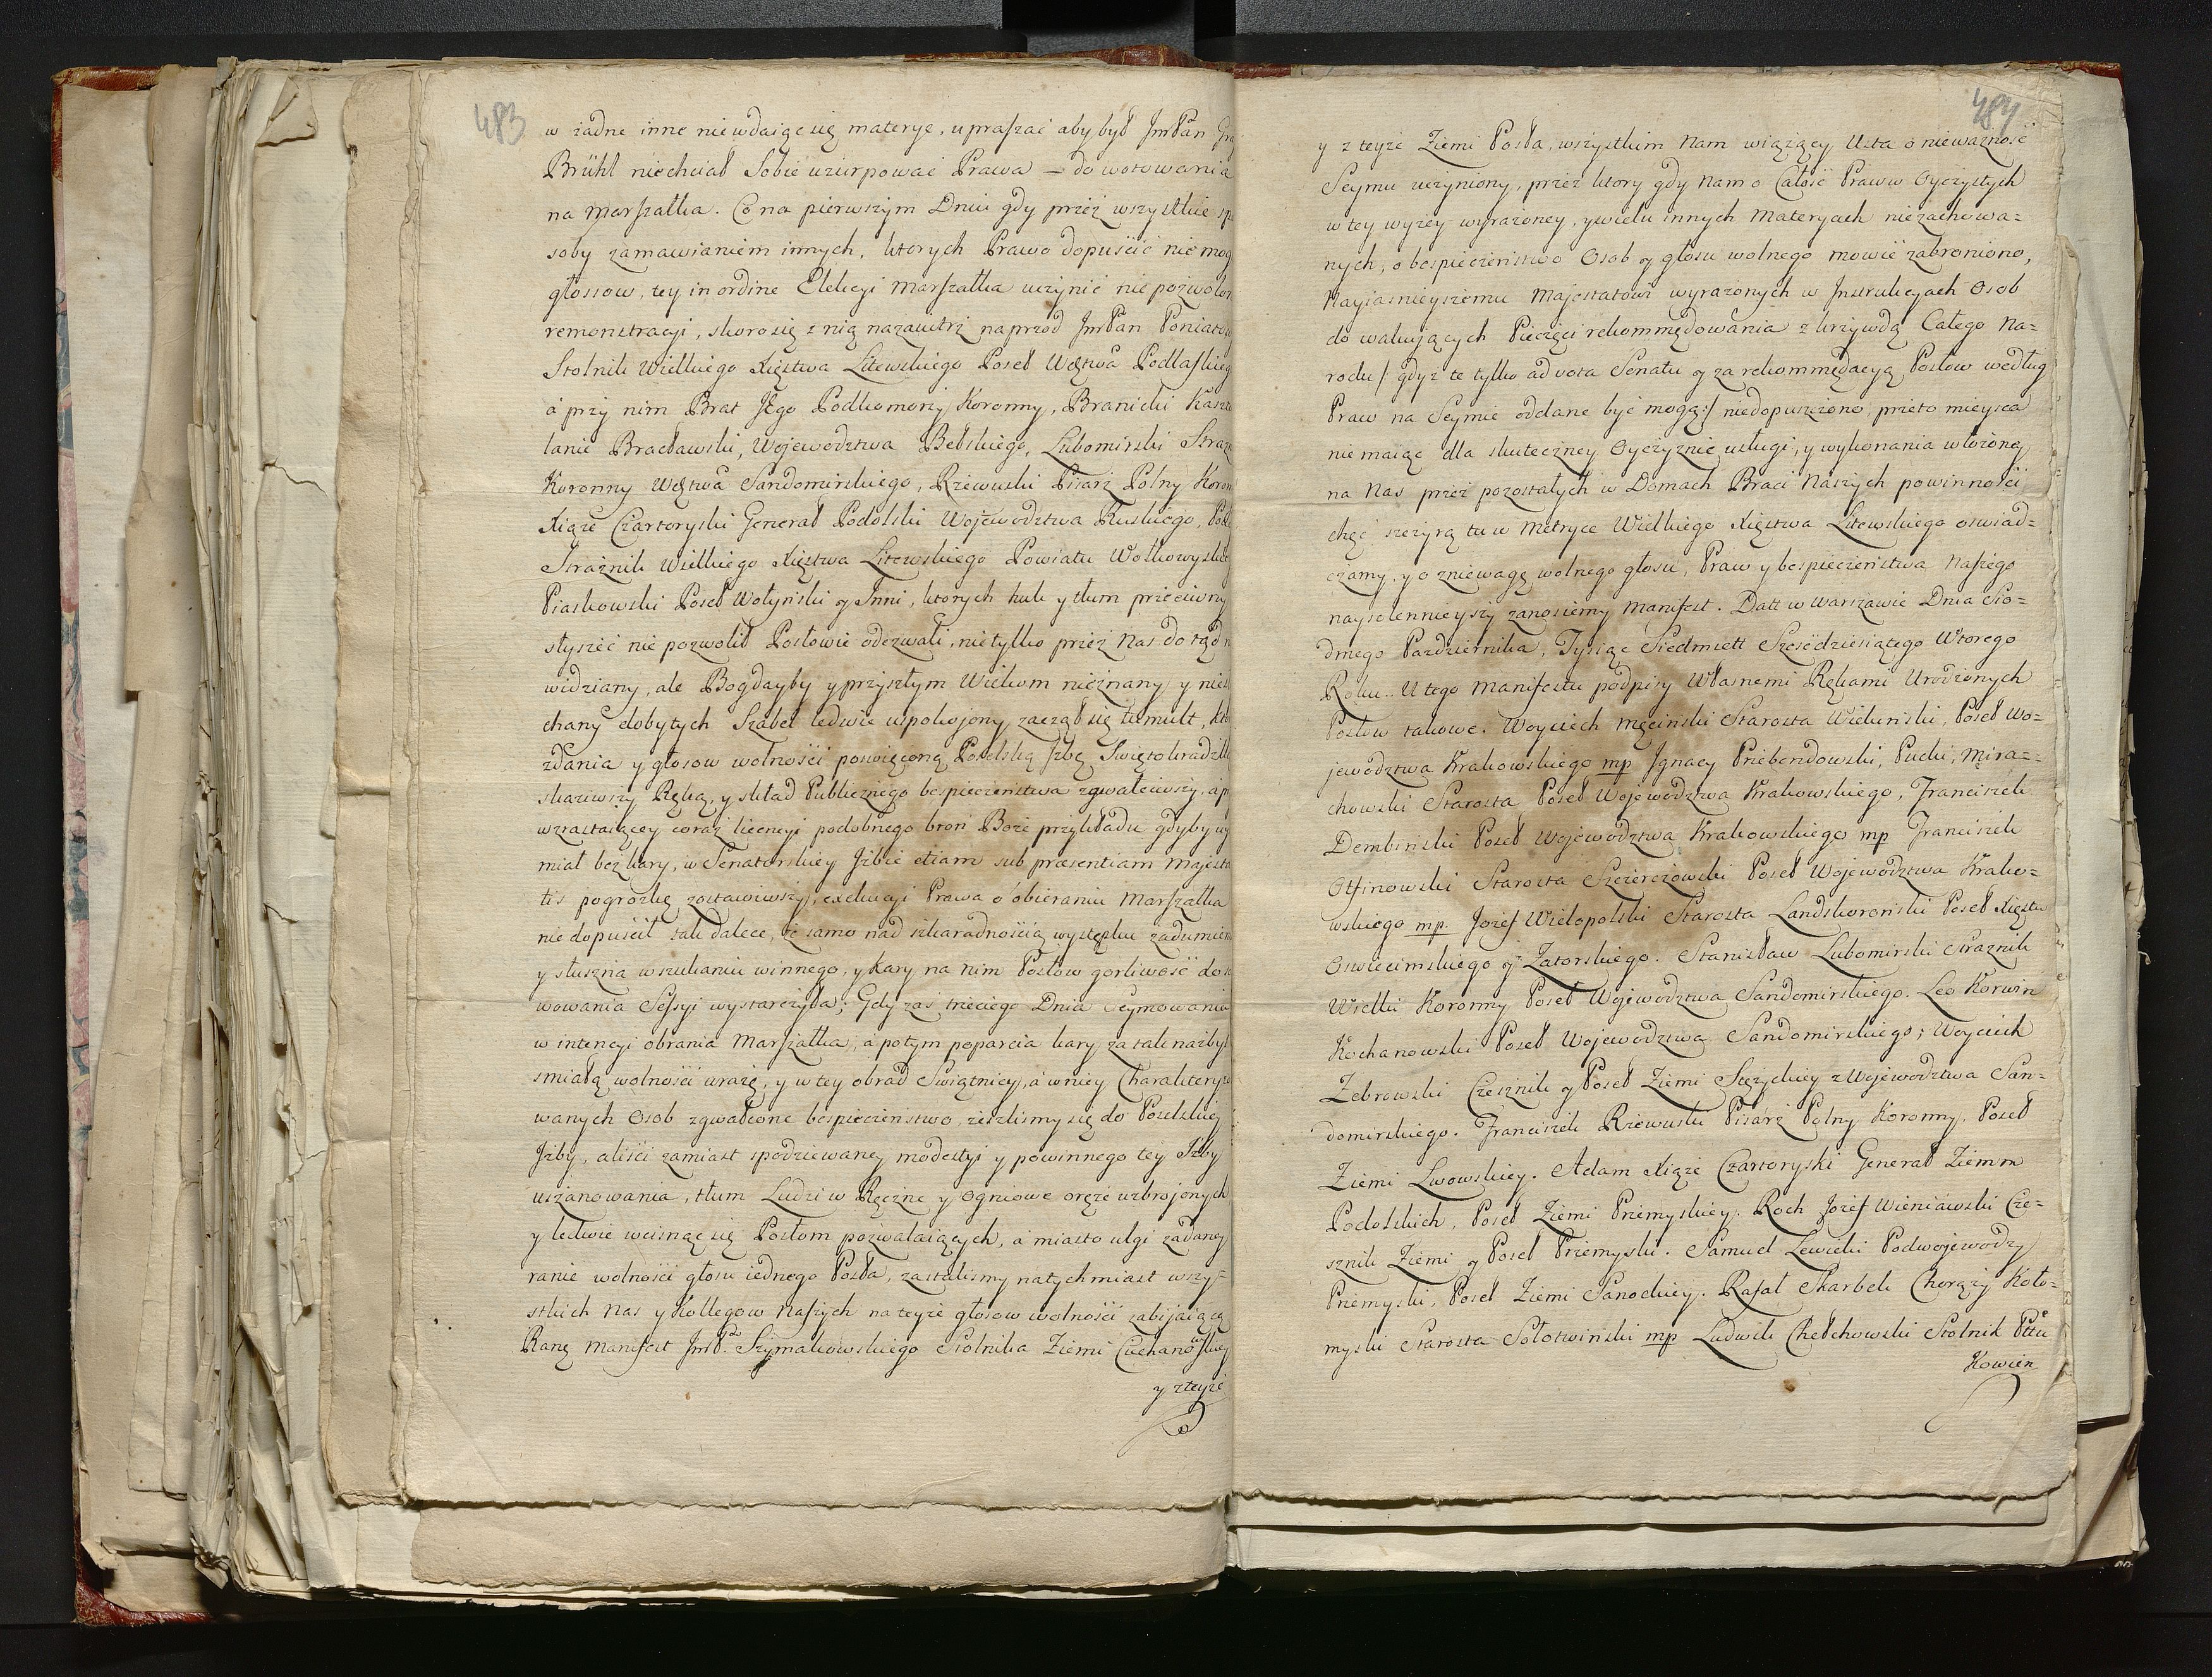 483
w żadne inne niewdaiąc się materye, upraszać aby był JmPan
Brühl niechciał Sobie uzurpować Prawa – do wotowania
na Marszałka. Co na pierwszym Dniu gdy przez wszystkie
soby zamawianiem innych, ktorych Prawo dopuścić nie mog
głossow, tey in ordine Elekcyi Marszałka uczynić nie pozwolon
remonstracyi, skoro się z nią nazaiutrz naprzod JmPan Poniatow
Stolnik Wielkiego Xięstwa Litewskiego Poseł Wdztwa Podlaskieg
á przy nim Brat Jego Podkomorzy Koronny, Branicki Kaszte
lanic Bracławski, Wojewodztwa Bełskiego, Lubomirski Straż
Koronny Wdztwa Sandomirskiego, Rzewuski Pisarz Polny Koron
Xiąże Czartoryski Generał Podolski Wojewodztwa Ruskiego,
Strażnik Wielkiego Xięstwa Litewskiego Powiatu Wołkowyski
Piaskowski Poseł Wołyński y Inni, ktorych huk y tłum przeciwny
słyszeć nie pozwolił Posłowie odezwali, nietylko przez Nas dotąd n
widziany, ale Bogdayby y przyszłym Wiekom nieznany y niesły
chany dobytych Szabel ledwie uspokojony zaczął się tumult, kto
zdania y głosow wolności poswięconą Poselską Izbę Swiętokradzk
skaziwszy Ręką, y skład Publicznego bespieczeństwa zgwałciwszy, á p
wzrastaiącey coraz licencyi podobnego broń Boże przykładu gdyby uy
miał bez kary, w Senatorskiey Izbie etiam sub præsentiam Majesta
tis pogrozkę zostawiwszy, exekucyi Prawa o obieraniu Marszałka
nie dopuścił tak dalece, że samo nad szkaradnością występku zadumien
y słuszna w szukaniu winnego, y kary na nim Posłow gorliwość do s
wowania Sessyi wystarczyła; Gdy zaś trzeciego Dnia Seymowania
w intencyi obrania Marszałka, á potym poparcia kary za tak nazbyt
smiałą wolności urazę, y w tey obrad Swiątnicy, á w niey Charakteryzo
wanych Osob zgwałcone bespieczeństwo, zeszlismy się do Poselskiey
Izby, aliści zamiast spodziewaney modestyi y powinnego tey Izby
uszanowania, tłum Ludzi w Ręczne y Ogniowe oręże uzbrojonych
y ledwie wcisnąc się Posłom pozwalaiących, á miasto ulgi zadaney
ranie wolności głosu iednego Posła, zastalismy natychmiast wszy=
stkich Nas y Kollegow Naszych na teyże głosow wolności zabijaiącą
Ranę Manifest JmP. Szymakowskiego Stolnika Ziemi Ciechanowskiey
y z teyże
484
y z teyże Ziemi Posła, wszystkim Nam wiążący Usta o nieważność
Seymu uczyniony, przez ktory gdy Nam o Całość Praww Oyczystych
w tey wyżey wyrażoney, y wielu innych Materyach niezachowa=
nych, o bespieczeństwo Osob y głosu wolnego mowić zabroniono,
Nayiasnieyszemu Majestatowi wyrażonych w Instrukcyach Osob
do wakujących Pieczęci rekommędowania z krzywdą Całego Na=
rodu /: gdyż te tylko ad vota Senatu y za rekommędacyą Posłow według
Praw na Seymie oddane być mogą:/ niedopuszczono, przeto mieysca
nie maiąc dla skuteczney Oyczyznie usługi, y wykonania włożoney
na Nas przez pozostałych w Domach Braci Naszych powinności,
chęć szczyrą tu w Metryce Wielkiego Xięstwa Litewskiego oswiad=
czamy, y o zniewagę wolnego głosu, Praw y bespieczeństwa Naszego
naysolennieyszy zanosiemy Manifest. Datt w Warszawie Dnia Sio=
dmego Pazdziernika, Tysiąc Siedmsett Sześćdziesiątego Wtorego
Roku.. U tego Manifestu podpisy Własnemi Rękami Urodzonych
Posłow takowe. Woyciech Męcinski Starosta Wieluński, Poseł Wo=
jewodztwa Krakowskiego mp Ignacy Przebendowski, Pucki, Mira=
chowski Starosta Poseł Wojewodztwa Krakowskiego, Franciszek
Dembiński Poseł Wojewodztwa Krakowskiego mp Franciszek
Otfinowski Starosta Szczerczowski Poseł Wojewodztwa Krako=
wskiego mp. Jozef Wielopolski Starosta Landskoroński Poseł Xięstw
Oswiecimskiego y Zatorskiego. Stanisław Lubomirski Strażnik
Wielki Koronny Poseł Wojewodztwa Sandomirskiego. Leo Korwin
Kochanowski Poseł Wojewodztwa Sandomirskiego; Woyciech
Zebrowski Czesznik y Poseł Ziemi Stęzyckiey z Wojewodztwa San=
domirskiego. Franciszek Rzewuski Pisarz Polny Koronny, Poseł
Ziemi Lwowskiey. Adam Xiąże Czartoryski Generał Ziemm
Podolskich, Poseł Ziemi Przemyskiey. Roch Jozef Wieniawski Cze=
sznik Ziemi y Poseł Przemyski. Samuel Lewicki Podwojewodzy
Przemyski, Poseł Ziemi Sanockiey. Rafał Skarbek Chorąży Koło=
myski Starosta Sołotwiński mp Ludwik Chełchowski Stolnik
Kowien